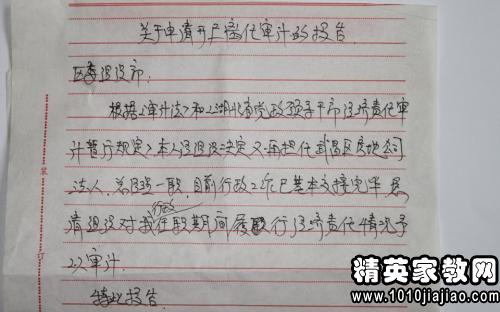 关于申请开展离任审计的报告
区委组织部:
根据《审计法》和《湖北省党政领导干部经济责任审
计暂行规定》本人经组织决定不再担任武昌区房地公司
法人、总经理一职,目前行政工作已基本交接完毕,恳
请组织对我行政任职期间履行经济责任情况予
以审计.
特此报告
装
订
精英家教网
www.1010jiajiao.com